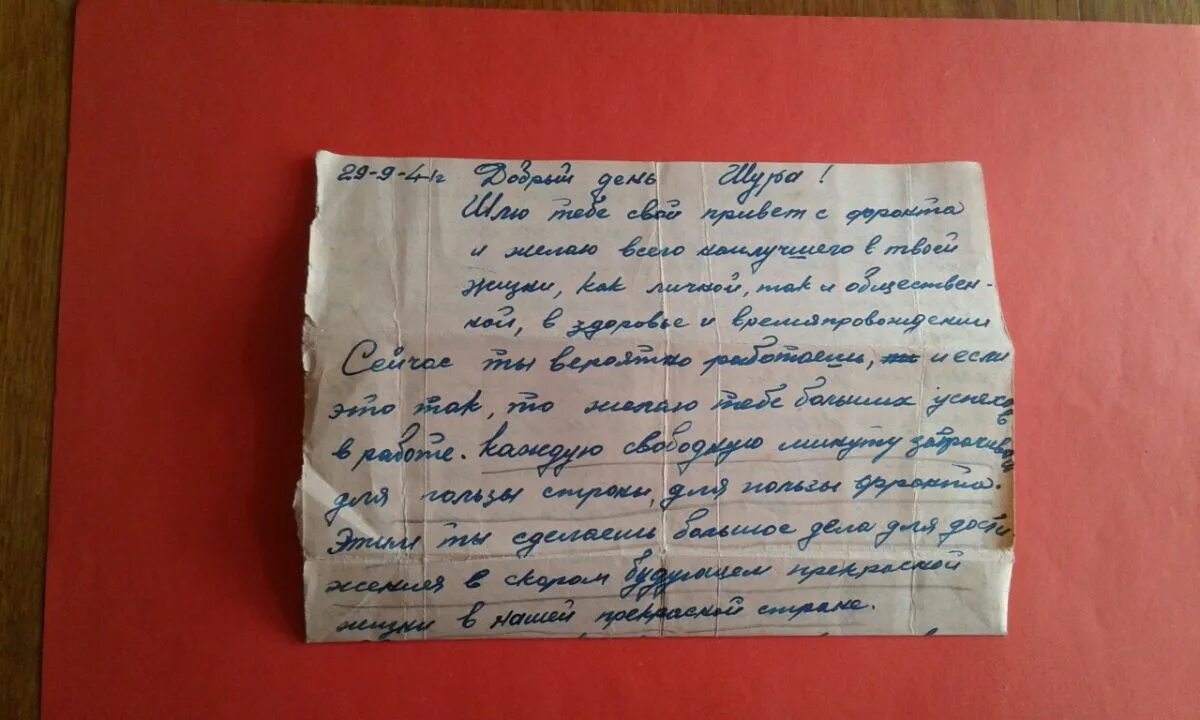 29-9-41г Добрый день Шура!
Шлю тебе свой привет с фронта
и желаю всего наилучшего в твоей
жизни, как личной, так и обществен-
ной, в здоровье и времяпровождении
Сейчас ты вероятно работаешь, и если
это так, то желаю тебе больших успехов
в работе. Каждую свободную минуту затрачивай
для пользы страны, для пользы фронта.
Этим ты сделаешь большое дела для дости
жения в скором будующем прекрасной
жизни в нашей прекрасной стране.